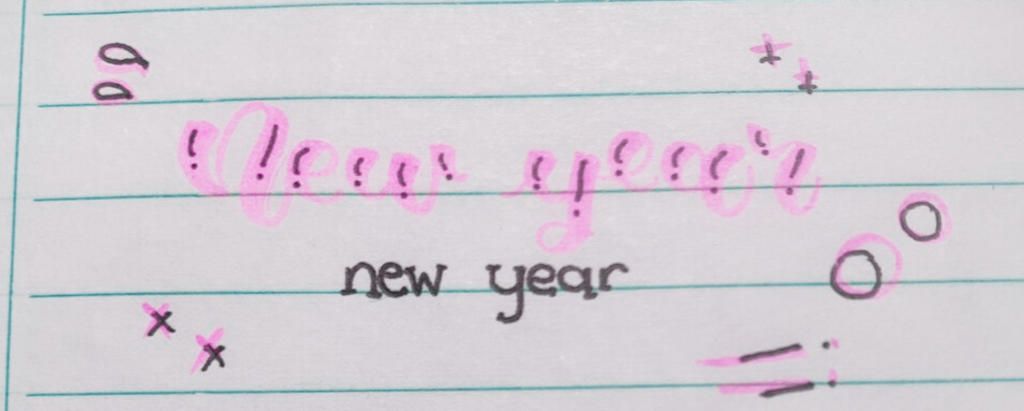 New year
new year